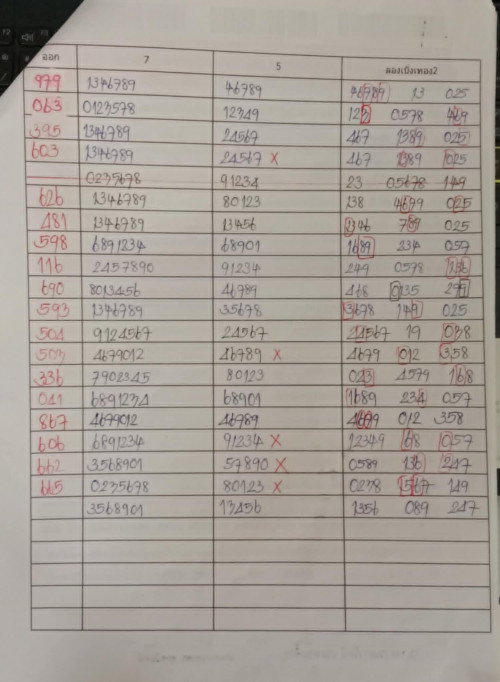 ออก 7 5 ลองเบิ่งเทอง2
979 1346789 46789 46789 13 025
063 0123578 12349 123 0578 469
395 1346789 24567 467 1389 025
603 1346789 24567 X 467 1389 025
0235678 91234 23 05678 149
626 1346789 80123 138 4679 025
481 1346789 13456 1346 789 025
598 6891234 68901 1689 234 057
116 2457890 91234 249 0578 136
690 8013456 46789 468 0135 279
593 1346789 35678 3678 149 025
504 9124567 24567 24567 19 038
503 4679012 46789 X 4679 012 358
336 7902345 80123 023 4579 168
041 6891234 68901 1689 234 057
867 4679012 46789 4679 012 358
606 6891234 91234 X 12349 68 057
662 3568901 57890 X 0589 136 247
665 0235678 80123 X 0238 1567 149
3568901 13456 1356 089 247